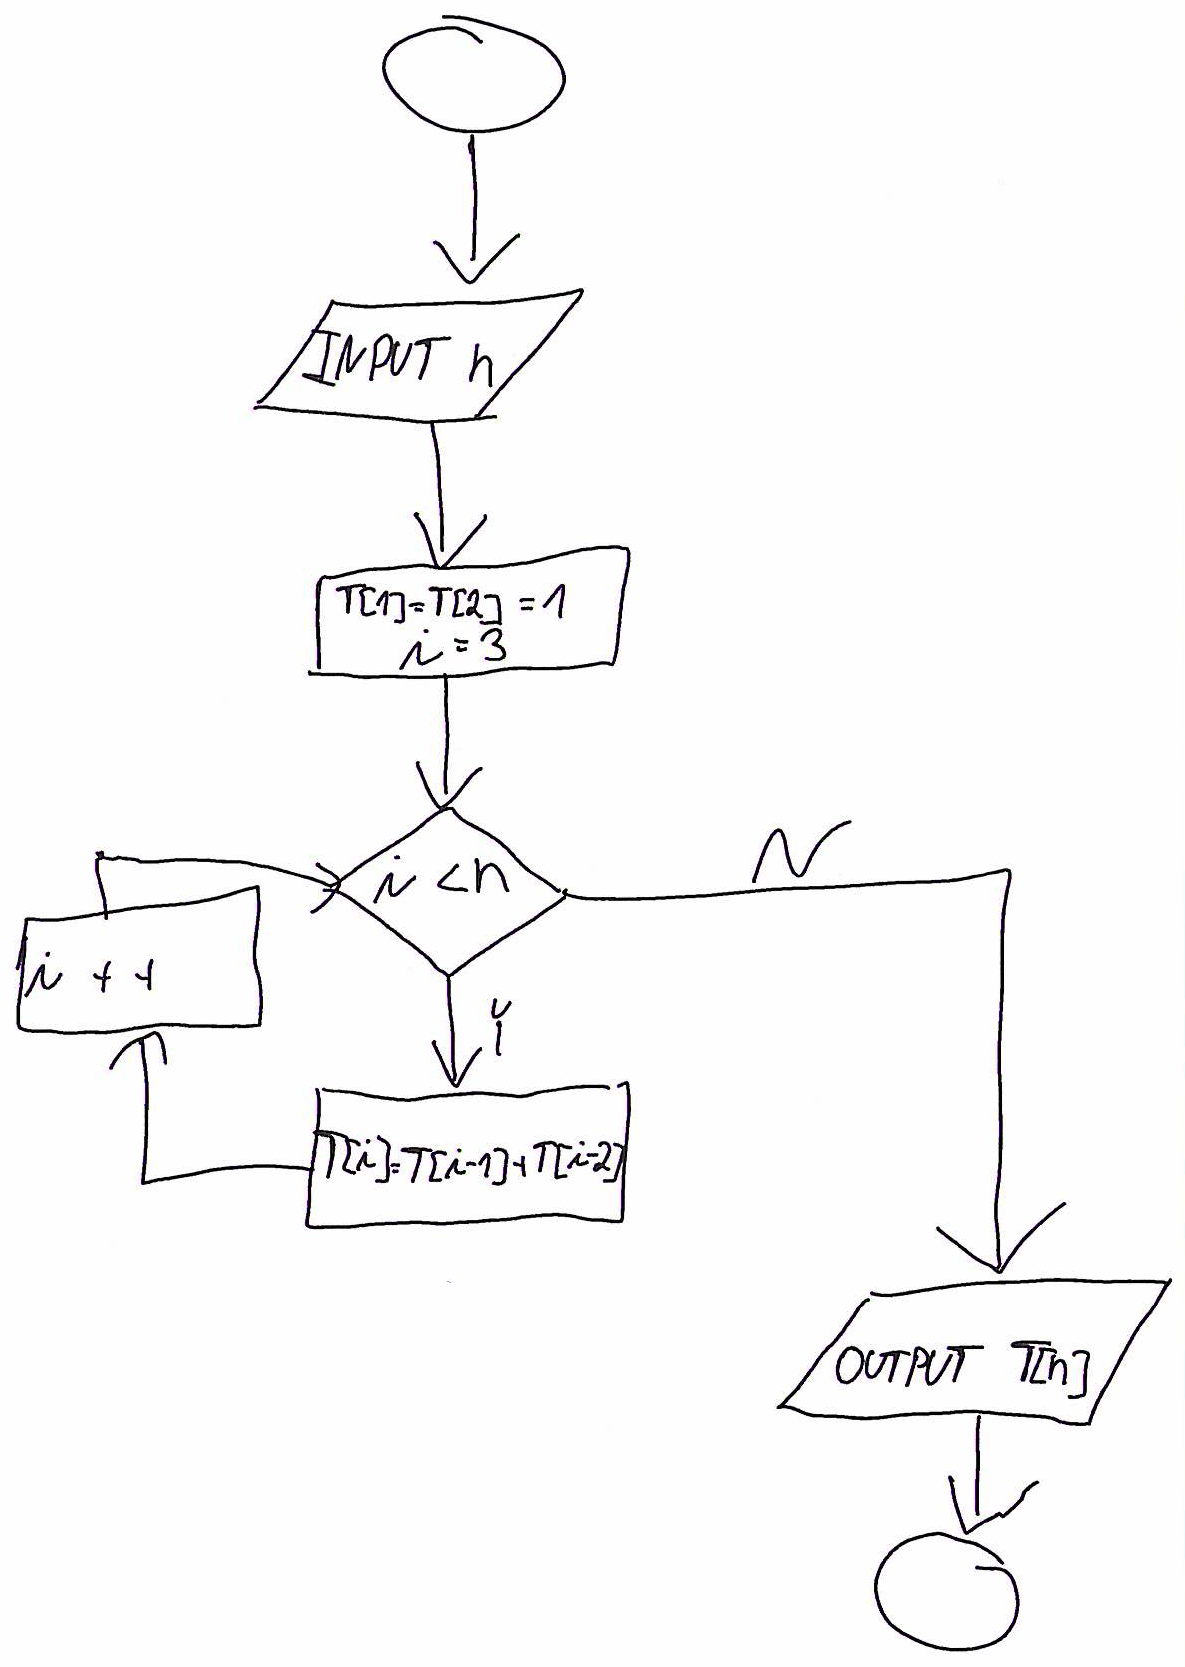 INPUT n
T[1]=T[2]=1
i=3
i<n
N
i++
T[i]=T[i-1]+T[i-2]
OUTPUT T[n]